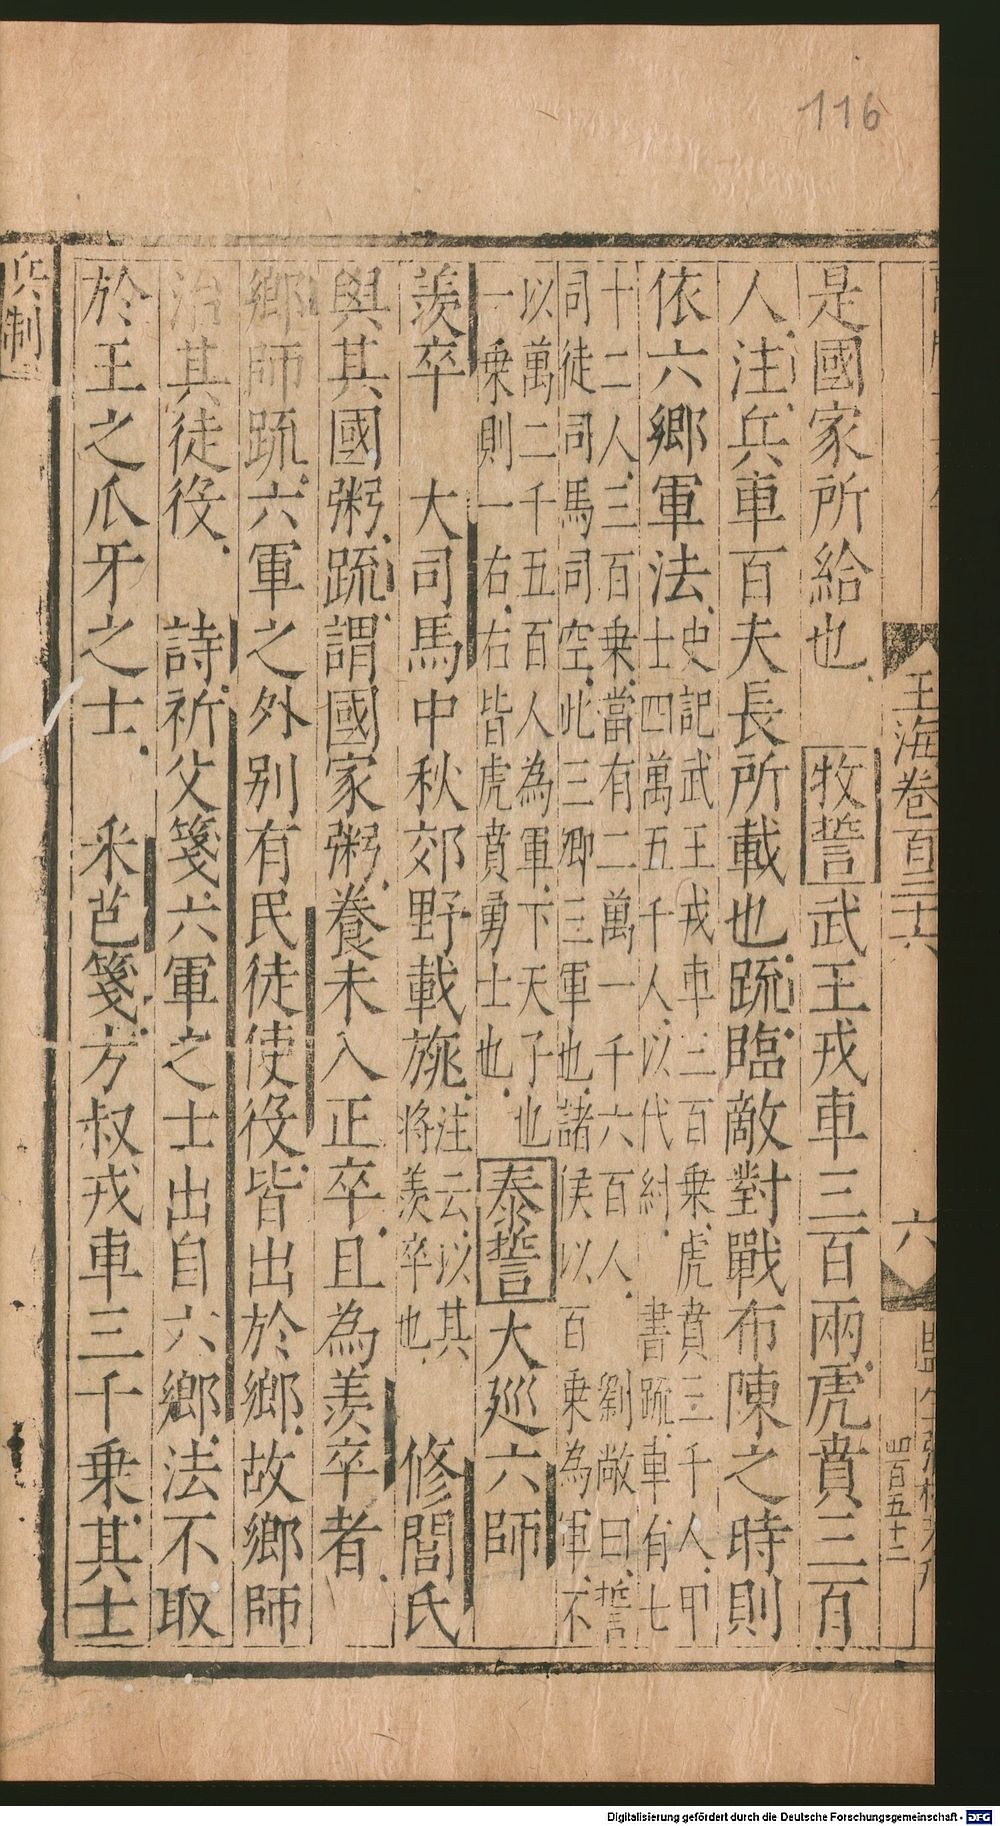 116
玉海卷百三十六
六
四百五十二
是國家所給也 牧誓武王戎車三百兩虎賁三百
人注兵車百夫長所載也疏臨敵對戰布陳之時則
依六鄉軍法史記武王戎車三百乗虎賁三千人甲
士四萬五千人以代紂 書疏車有七
十二人三百乗當有二萬一千六百人 劉敞曰誓
司徒司馬司空此三卿三軍也諸侯以百乗為軍不
以萬二千五百人為軍下天子也
一乗則一右右皆虎賁勇士也 泰誓大巡六師
羨卒 大司馬中秋郊野載旐注云以其
将羨卒也 修閭氏
與其國粥疏謂國家粥養未入正卒且為羨卒者
鄉師疏六軍之外别有民徒使役皆出於鄉故鄉師
治其徒役 詩祈父箋六軍之士出自六鄉法不取
於王之爪牙之士 采芑箋方叔戎車三千乗其士
兵制
Digitalisierung gefördert durch die Deutsche Forschungsgemeinschaft - DFG